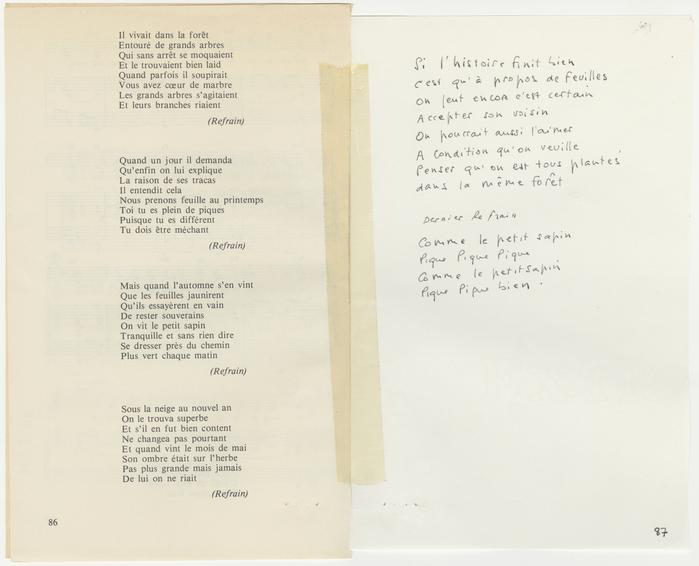 Il vivait dans la forêt
Entouré de grands arbres
Qui sans arrêt se moquaient
Et le trouvaient bien laid
Quand parfois il soupirait
Vous avez cœur de marbre
Les grands arbres s'agitaient
Et leurs branches riaient
(Refrain)
Quand un jour il demanda
Qu'enfin on lui explique
La raison de ses tracas
Il entendit cela
Nous prenons feuille au printemps
Toi tu es plein de piques
Puisque tu es différent
Tu dois être méchant
(Refrain)
Mais quand l'automne s'en vint
Que les feuilles jaunirent
Qu'ils essayèrent en vain
De rester souverains
On vit le petit sapin
Tranquille et sans rien dire
Se dresser près du chemin
Plus vert chaque matin
(Refrain)
Sous la neige au nouvel an
On le trouva superbe
Et s'il en fut bien content
Ne changea pas pourtant
Et quand vint le mois de mai
Son ombre était sur l'herbe
Pas plus grande mais jamais
De lui on ne riait
(Refrain)
86
Si l'histoire finit bien
c'est qu'à propos de feuilles
on peut encor c'est certain
Accepter son voisin
On pourrait aussi l'aimer
A condition qu'on veuille
Penser qu'on est tous plantés
dans la même forêt
Dernier Refrain
Comme le petit sapin
Pique Pique Pique
Comme le petit sapin
Pique Pique bien.
87